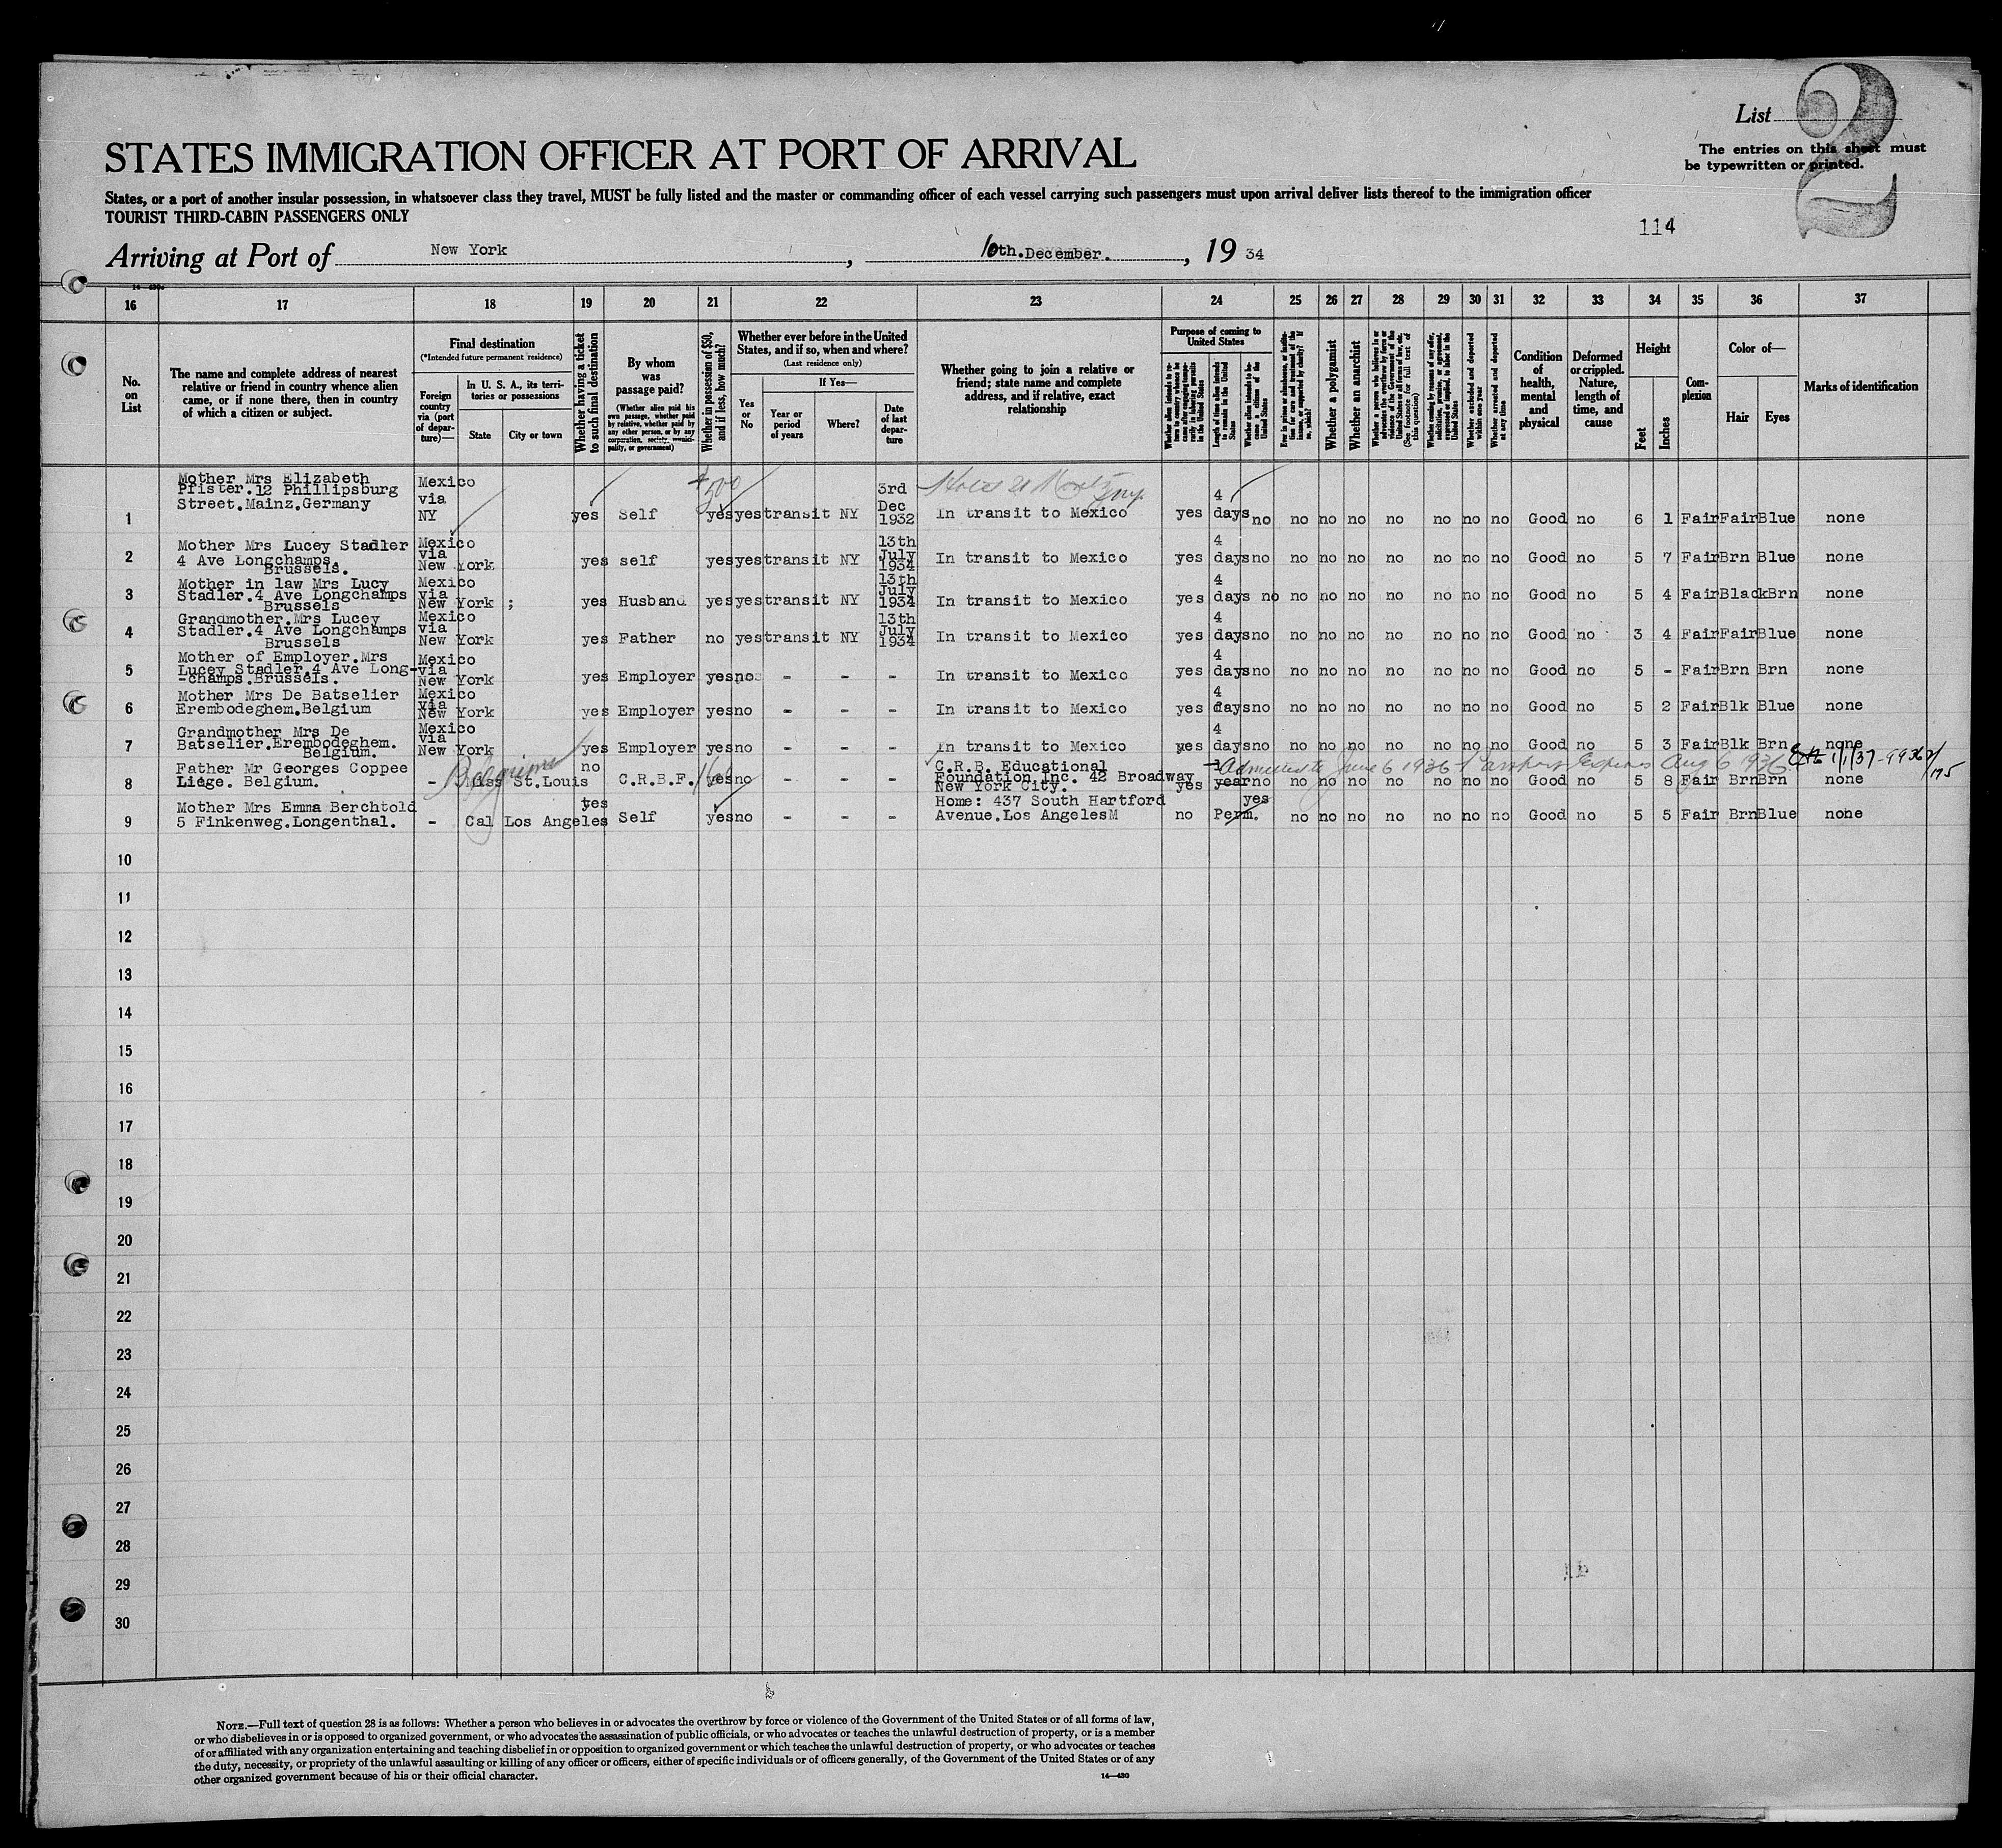 List 2
STATES IMMIGRATION OFFICER AT PORT OF ARRIVAL
The entries on this sheet must
be typewritten or printed.
States, or a port of another insular possession, in whatsoever class they travel, MUST be fully listed and the master or commanding officer of each vessel carrying such passengers must upon arrival deliver lists thereof to the immigration officer
TOURIST THIRD-CABIN PASSENGERS ONLY
114
Arriving at Port of New York, 10th. December., 19 34
16 17 18 19 20 21 22 23 24 25 26 27 28 29 30 31 32 33 34 35 36 37
No. on List
The name and complete address of nearest relative or friend in country whence alien came, or if none there, then in country of which a citizen or subject.
Final destination
(*Intended future permanent residence)
Foreign country via (port of departure)—
In U. S. A., its territories or possessions
State
City or town
Whether having a ticket to such final destination
By whom was passage paid?
(Whether alien paid his own passage, whether paid by relative, whether paid by any other person, or by any corporation, society, municipality, or government)
Whether in possession of $50, and if less, how much?
Whether ever before in the United States, and if so, when and where?
(Last residence only)
Yes or No
If Yes—
Year or period of years
Where?
Date of last departure
Whether going to join a relative or friend; state name and complete address, and if relative, exact relationship
Purpose of coming to United States
Length of time alien intends to remain in the United States
Whether alien intends to become a citizen of the United States
Whether a polygamist
Whether an anarchist
Whether excluded and deported within one year
Whether arrested and deported at any time
Condition of health, mental and physical
Deformed or crippled. Nature, length of time, and cause
Height
Feet
Inches
Complexion
Color of—
Hair
Eyes
Marks of identification
1 Mother Mrs Elizabeth Pfister.12 Phillipsburg Street.Mainz.Germany Mexico via NY yes Self yes yes transit NY 3rd Dec 1932 In transit to Mexico yes 4 days no no no no no no no no Good no 6 1 Fair Fair Blue none
2 Mother Mrs Lucey Stadler 4 Ave Longchamps. Brussels. Mexico via New York yes self yes yes transit NY 13th July 1934 In transit to Mexico yes 4 days no no no no no no no no Good no 5 7 Fair Brn Blue none
3 Mother in law Mrs Lucy Stadler.4 Ave Longchamps Brussels Mexico via New York ; yes Husband yes yes transit NY 13th July 1934 In transit to Mexico yes 4 days no no no no no no no no Good no 5 4 Fair Black Brn none
4 Grandmother.Mrs Lucey Stadler.4 Ave Longchamps Brussels Mexico via New York yes Father no yes transit NY 13th July 1934 In transit to Mexico yes 4 days no no no no no no no no Good no 3 4 Fair Fair Blue none
5 Mother of Employer.Mrs Lucey Stadler.4 Ave Long-champs.Brussels. Mexico via New York yes Employer yes no - - - In transit to Mexico yes 4 days no no no no no no no no Good no 5 - Fair Brn Brn none
6 Mother Mrs De Batselier Erembodeghem.Belgium Mexico via New York yes Employer yes no - - - In transit to Mexico yes 4 days no no no no no no no no Good no 5 2 Fair Blk Blue none
7 Grandmother Mrs De Batselier.Erembodeghem. Belgium. Mexico via New York yes Employer yes no - - - In transit to Mexico yes 4 days no no no no no no no no Good no 5 3 Fair Blk Brn none
Admitted to June 6 1936 Passport Expires Aug 6 1936
8 Father Mr Georges Coppee Liége. Belgium. - Miss St.Louis no C.R.B.F. yes no - - - C.R.B. Educational Foundation Inc. 42 Broadway New York City. yes 1 year no no no no no no no no Good no 5 8 Fair Brn Brn none
9 Mother Mrs Emma Berchtold 5 Finkenweg.Longenthal. - Cal Los Angeles yes Self yes no - - - Home: 437 South Hartford Avenue.Los Angeles no Perm. yes no no no no no no no Good no 5 5 Fair Brn Blue none
10
11
12
13
14
15
16
17
18
19
20
21
22
23
24
25
26
27
28
29
30
NOTE.—Full text of question 28 is as follows: Whether a person who believes in or advocates the overthrow by force or violence of the Government of the United States or of all forms of law,
or who disbelieves in or is opposed to organized government, or who advocates the assassination of public officials, or who advocates or teaches the unlawful destruction of property, or is a member
of or affiliated with any organization entertaining and teaching disbelief in or opposition to organized government or which teaches the unlawful destruction of property, or who advocates or teaches
the duty, necessity, or propriety of the unlawful assaulting or killing of any officer or officers, either of specific individuals or of officers generally, of the Government of the United States or of any
other organized government because of his or their official character.
14—430